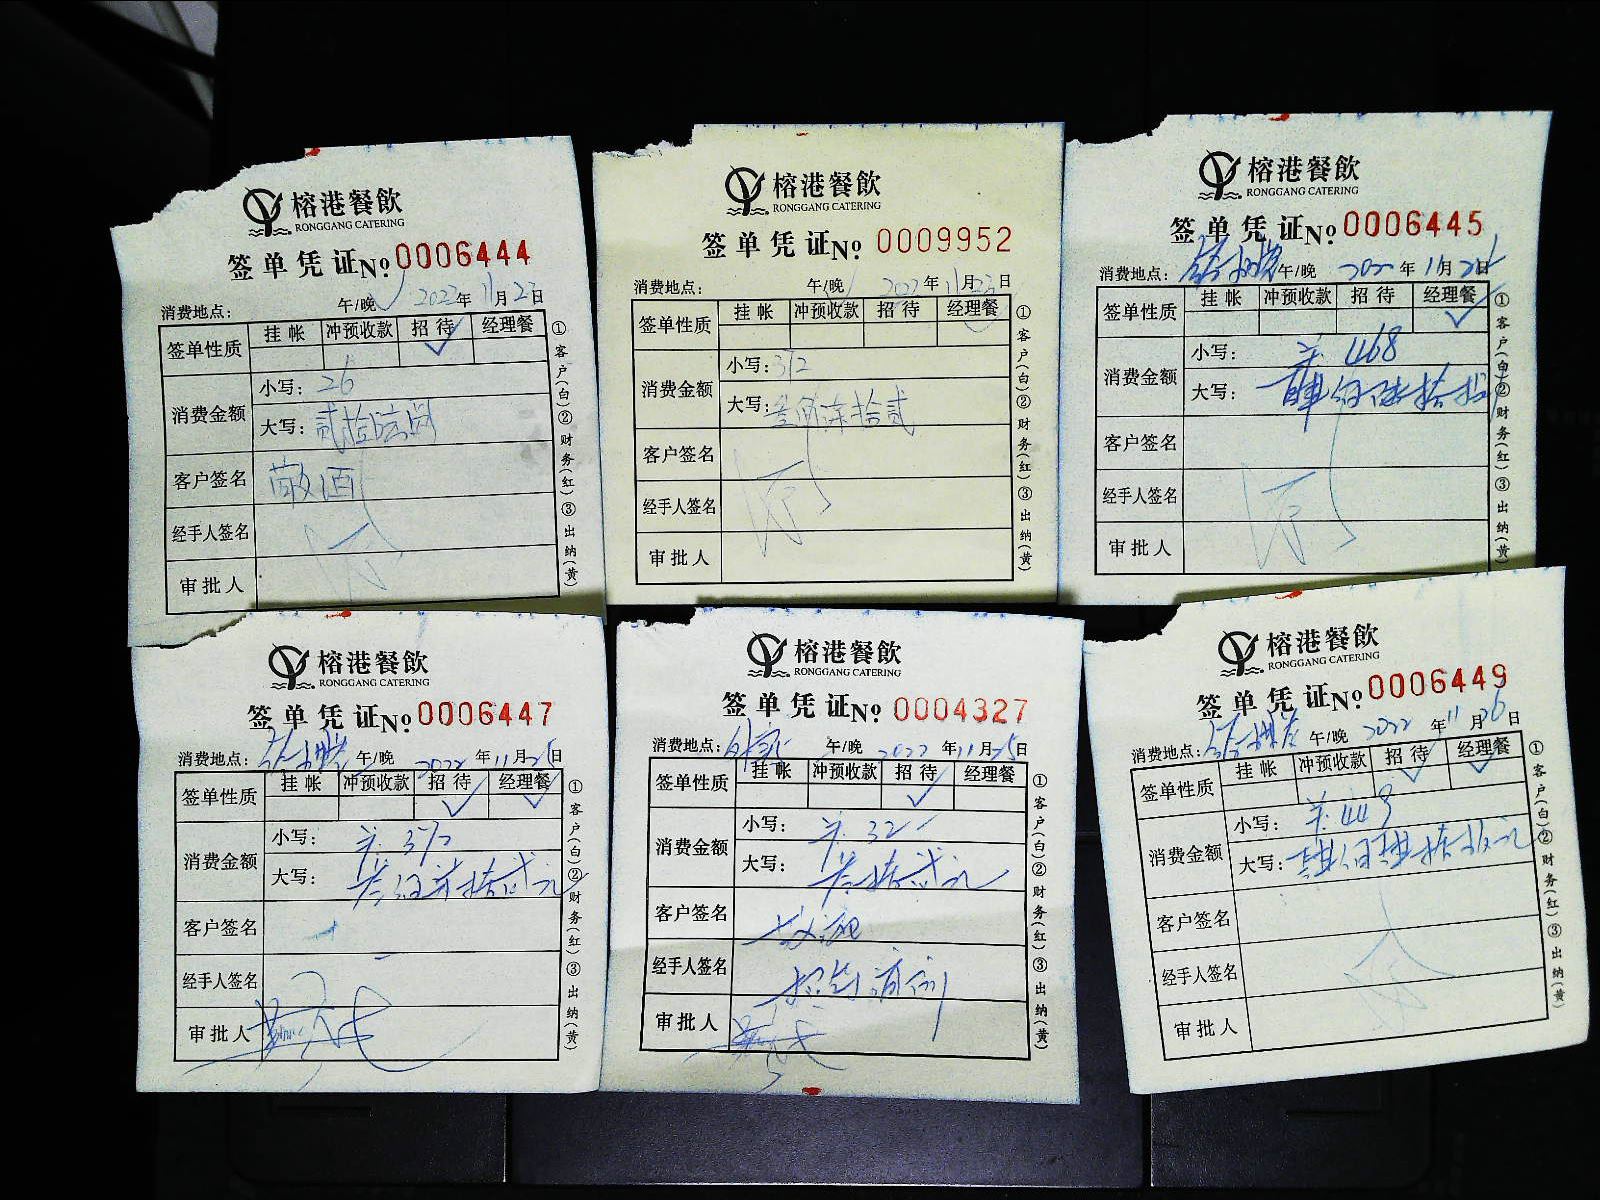 榕港餐飲
RONGGANG CATERING
签单凭证 No 0006444
消费地点： 午/晚 2022年11月23日
签单性质 挂帐 冲预收款 招待 经理餐
消费金额 小写：26
大写：贰拾陆圆
客户签名 敬酒
经手人签名
审批人
①客户(白)②财务(红)③出纳(黄)
榕港餐飲
RONGGANG CATERING
签单凭证 No 0009952
消费地点： 午/晚 2022年11月23日
签单性质 挂帐 冲预收款 招待 经理餐
消费金额 小写：372
大写：叁佰柒拾贰
客户签名
经手人签名
审批人
①客户(白)②财务(红)③出纳(黄)
榕港餐飲
RONGGANG CATERING
签单凭证 No 0006445
消费地点： 午/晚 2022年11月24日
签单性质 挂帐 冲预收款 招待 经理餐
消费金额 小写：羊468
大写：肆佰陆拾捌
客户签名
经手人签名
审批人
①客户(白)②财务(红)③出纳(黄)
榕港餐飲
RONGGANG CATERING
签单凭证 No 0006447
消费地点： 午/晚 2022年11月25日
签单性质 挂帐 冲预收款 招待 经理餐
消费金额 小写：羊372
大写：叁佰柒拾贰元
客户签名
经手人签名
审批人
①客户(白)②财务(红)③出纳(黄)
榕港餐飲
RONGGANG CATERING
签单凭证 No 0004327
消费地点： 午/晚 2022年11月25日
签单性质 挂帐 冲预收款 招待 经理餐
消费金额 小写：羊32
大写：叁拾贰元
客户签名 敬酒
经手人签名
审批人
①客户(白)②财务(红)③出纳(黄)
榕港餐飲
RONGGANG CATERING
签单凭证 No 0006449
消费地点： 午/晚 2022年11月26日
签单性质 挂帐 冲预收款 招待 经理餐
消费金额 小写：羊449
大写：肆佰肆拾玖元
客户签名
经手人签名
审批人
①客户(白)②财务(红)③出纳(黄)